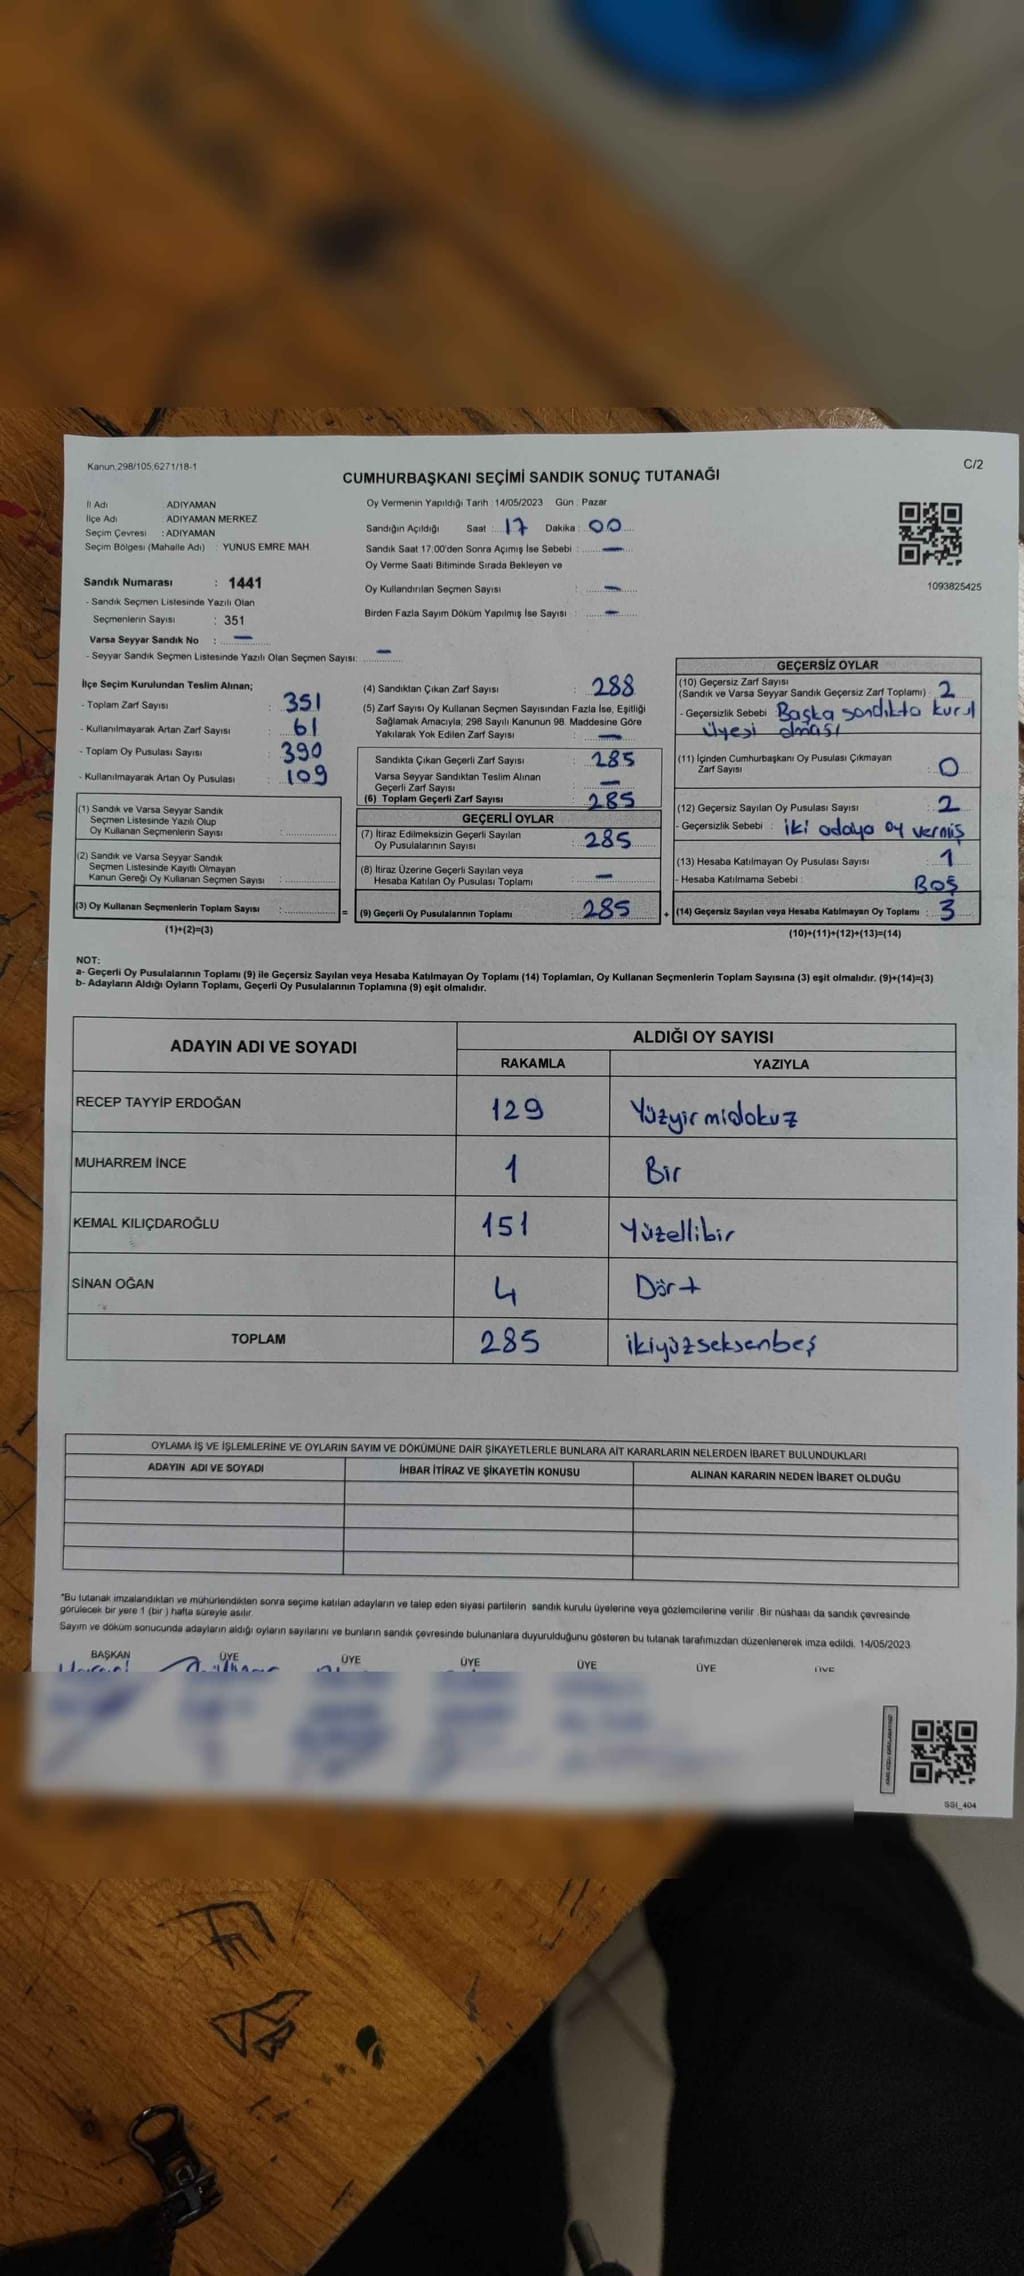 Kanun,298/105,6271/18-1
C/2
CUMHURBAŞKANI SEÇİMİ SANDIK SONUÇ TUTANAĞI
İl Adı : ADIYAMAN
İlçe Adı : ADIYAMAN MERKEZ
Seçim Çevresi : ADIYAMAN
Seçim Bölgesi (Mahalle Adı) : YUNUS EMRE MAH.
Sandık Numarası : 1441
- Sandık Seçmen Listesinde Yazılı Olan
Seçmenlerin Sayısı : 351
Varsa Seyyar Sandık No : —
- Seyyar Sandık Seçmen Listesinde Yazılı Olan Seçmen Sayısı: —
Oy Vermenin Yapıldığı Tarih : 14/05/2023 Gün : Pazar
Sandığın Açıldığı Saat : 17 Dakika : 00
Sandık Saat 17:00'den Sonra Açımış İse Sebebi : —
Oy Verme Saati Bitiminde Sırada Bekleyen ve
Oy Kullandırılan Seçmen Sayısı : —
Birden Fazla Sayım Döküm Yapılmış İse Sayısı : —
1093825425
İlçe Seçim Kurulundan Teslim Alınan;
- Toplam Zarf Sayısı : 351
- Kullanılmayarak Artan Zarf Sayısı : 61
- Toplam Oy Pusulası Sayısı : 390
- Kullanılmayarak Artan Oy Pusulası : 109
(1) Sandık ve Varsa Seyyar Sandık
Seçmen Listesinde Yazılı Olup
Oy Kullanan Seçmenlerin Sayısı :
(2) Sandık ve Varsa Seyyar Sandık
Seçmen Listesinde Kayıtlı Olmayan
Kanun Gereği Oy Kullanan Seçmen Sayısı :
(3) Oy Kullanan Seçmenlerin Toplam Sayısı :
(1)+(2)=(3)
(4) Sandıktan Çıkan Zarf Sayısı : 288
(5) Zarf Sayısı Oy Kullanan Seçmen Sayısından Fazla İse, Eşitliği
Sağlamak Amacıyla; 298 Sayılı Kanunun 98. Maddesine Göre
Yakılarak Yok Edilen Zarf Sayısı : —
Sandıkta Çıkan Geçerli Zarf Sayısı : 285
Varsa Seyyar Sandıktan Teslim Alınan
Geçerli Zarf Sayısı : —
(6) Toplam Geçerli Zarf Sayısı : 285
GEÇERLİ OYLAR
(7) İtiraz Edilmeksizin Geçerli Sayılan
Oy Pusulalarının Sayısı : 285
(8) İtiraz Üzerine Geçerli Sayılan veya
Hesaba Katılan Oy Pusulası Toplamı : —
= (9) Geçerli Oy Pusulalarının Toplamı : 285
GEÇERSİZ OYLAR
(10) Geçersiz Zarf Sayısı
(Sandık ve Varsa Seyyar Sandık Geçersiz Zarf Toplamı) : 2
- Geçersizlik Sebebi : Başka sandıkta kurul
üyesi olması
(11) İçinden Cumhurbaşkanı Oy Pusulası Çıkmayan
Zarf Sayısı : 0
(12) Geçersiz Sayılan Oy Pusulası Sayısı : 2
- Geçersizlik Sebebi : iki adaya oy vermiş
(13) Hesaba Katılmayan Oy Pusulası Sayısı : 1
- Hesaba Katılmama Sebebi : Boş
+ (14) Geçersiz Sayılan veya Hesaba Katılmayan Oy Toplamı : 3
(10)+(11)+(12)+(13)=(14)
NOT:
a- Geçerli Oy Pusulalarının Toplamı (9) ile Geçersiz Sayılan veya Hesaba Katılmayan Oy Toplamı (14) Toplamları, Oy Kullanan Seçmenlerin Toplam Sayısına (3) eşit olmalıdır. (9)+(14)=(3)
b- Adayların Aldığı Oyların Toplamı, Geçerli Oy Pusulalarının Toplamına (9) eşit olmalıdır.
ADAYIN ADI VE SOYADI
ALDIĞI OY SAYISI
RAKAMLA YAZIYLA
RECEP TAYYİP ERDOĞAN 129 Yüzyirmidokuz
MUHARREM İNCE 1 Bir
KEMAL KILIÇDAROĞLU 151 Yüzellibir
SİNAN OĞAN 4 Dört
TOPLAM 285 ikiyüzseksenbeş
OYLAMA İŞ VE İŞLEMLERİNE VE OYLARIN SAYIM VE DÖKÜMÜNE DAİR ŞİKAYETLERLE BUNLARA AİT KARARLARIN NELERDEN İBARET BULUNDUKLARI
ADAYIN ADI VE SOYADI İHBAR İTİRAZ VE ŞİKAYETİN KONUSU ALINAN KARARIN NEDEN İBARET OLDUĞU
*Bu tutanak imzalandıktan ve mühürlendikten sonra seçime katılan adayların ve talep eden siyasi partilerin sandık kurulu üyelerine veya gözlemcilerine verilir .Bir nüshası da sandık çevresinde
görülecek bir yere 1 (bir ) hafta süreyle asılır.
Sayım ve döküm sonucunda adayların aldığı oyların sayılarını ve bunların sandık çevresinde bulunanlara duyurulduğunu gösteren bu tutanak tarafımızdan düzenlenerek imza edildi. 14/05/2023
BAŞKAN ÜYE ÜYE ÜYE ÜYE ÜYE ÜYE
SSI_404